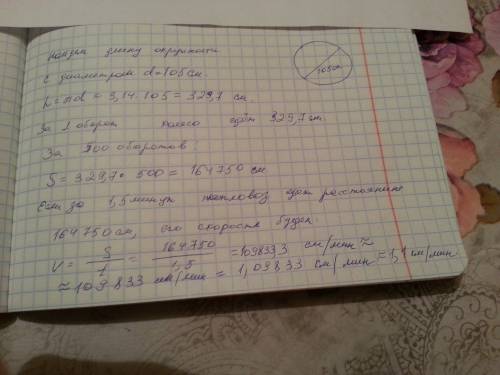 Найдем длину окружности
с диаметром d=105 см.
105 см
L=πd = 3,14·105=329,7 см.
За 1 оборот колесо едет 329,7 см.
За 500 оборотов:
S = 329,7· 500 = 164750 см
Если за 1,5 минут тепловоз едет расстояние
164750 см, его скорость будет:
V = S/t = 164750/1,5 = 109833,3 см/мин ≈
≈ 109833 см/мин = 1,09833 см/мин = 1,1 см/мин